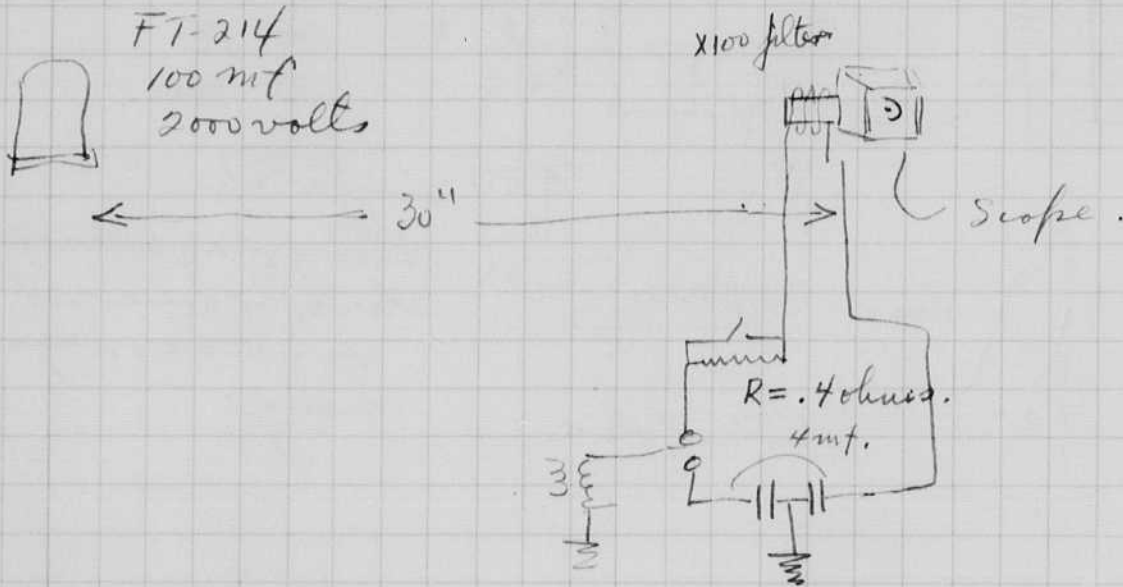 FT-214
100 mf
2000 volts
X100 filter
30"
Scope.
R = .4 ohms.
4 mf.